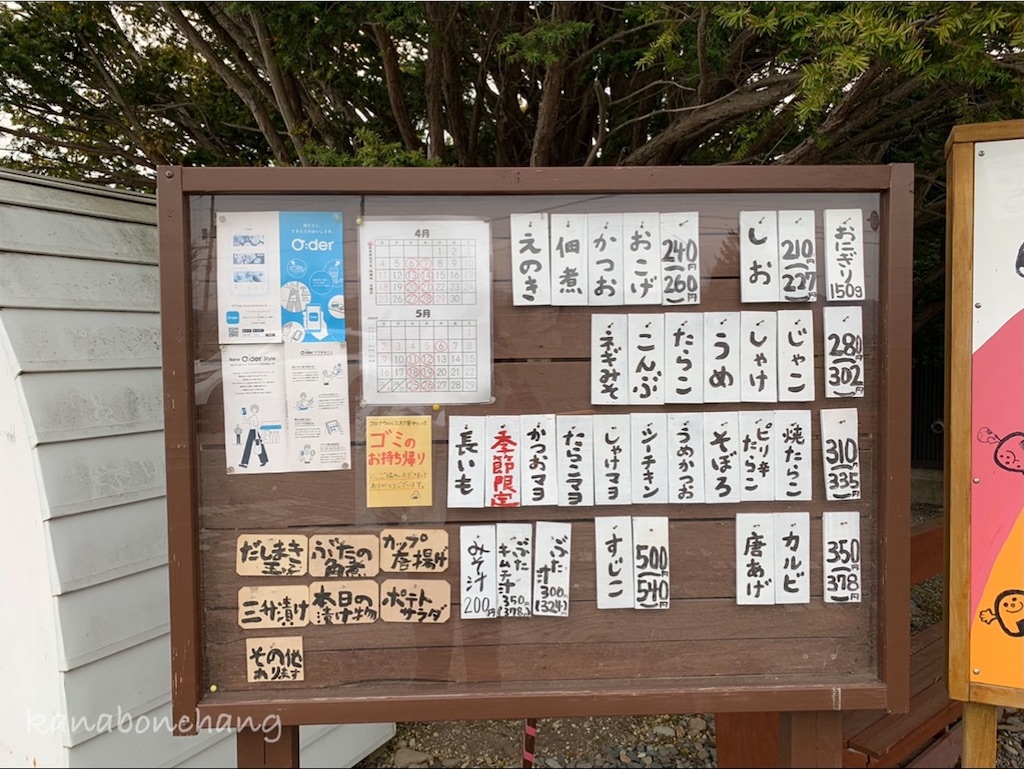 おにぎり
150g
210
227円
しお
240
260円
おこげ
かつお
佃煮
えのき
280
302円
じゃこ
しゃけ
うめ
たらこ
こんぶ
ネギみそ
310
335円
焼たらこ
ピリ辛たらこ
そぼろ
うめかつお
シーチキン
しゃけマヨ
たらこマヨ
かつおマヨ
季節限定
長いも
350
378円
カルビ
唐あげ
500
540円
すじこ
ぶた汁
300円
(324)
ぶたキムチ汁
350円
(378)
みそ汁
200円
O:der
New O:der Style
4月
5月
ゴミの
お持ち帰り
だしまき
玉子
ぶたの
角煮
カップ
唐揚げ
三升漬け
本日の
漬け物
ポテト
サラダ
その他
あります
kanabonchang